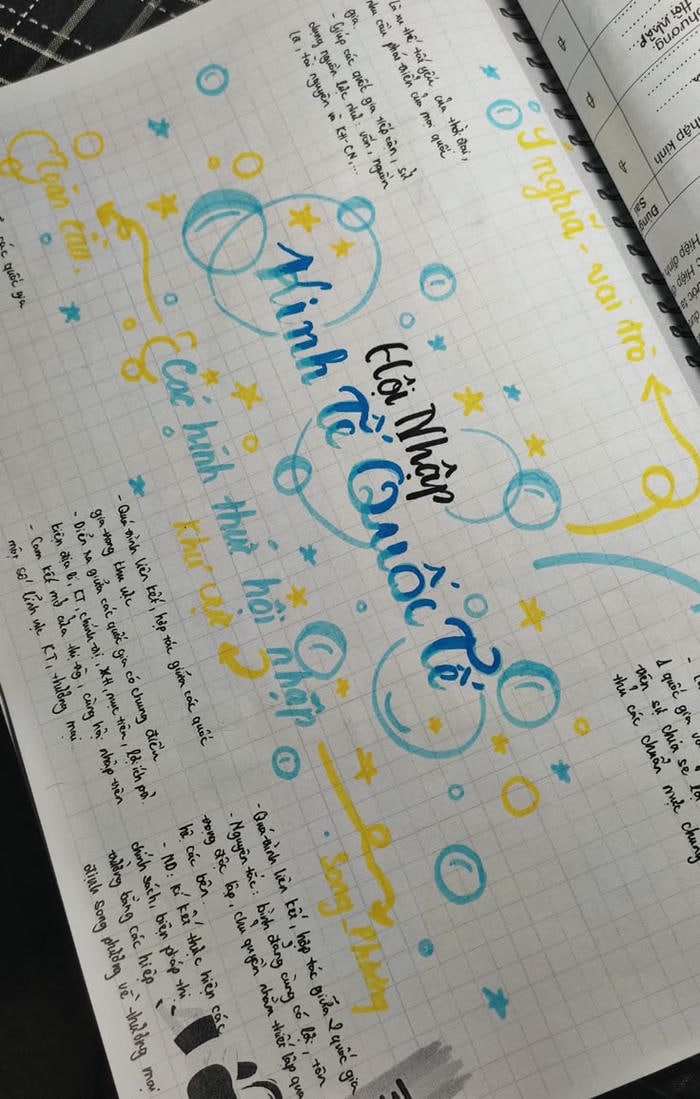 Hội Nhập
Kinh Tế Quốc Tế
Ý nghĩa - vai trò
là xu thế tất yếu của thời đại,
nhu cầu phát triển của mỗi quốc
gia
- Giúp các quốc gia tiếp cận, sử
dụng nguồn lực như: vốn, nguồn
tài nguyên và KH-CN,...
1 quốc gia
trên sự chia sẻ
thủ các chuẩn mực chung
Các hình thức hội nhập
Toàn cầu.
các quốc gia
khu vực
- Quá trình liên kết, hợp tác giữa các quốc
gia trong khu vực
- Diễn ra giữa các quốc gia có chung điểm
KT, chính trị, XH, mục tiêu, lợi ích
- Cam kết mở cửa thị cùng hội nhập trên
một số lĩnh vực KT, thương mại
Song Phương
- Quá trình liên kết, hợp tác giữa 2 quốc gia
- Nguyên tắc: bình đẳng cùng có lợi, tôn
trọng độc lập, chủ quyền nhằm thiết lập
hệ các bên
- ND: kí kết thực hiện các
chính sách, biện pháp thị
trường bằng các hiệp
định song phương về thương mại
Hội nhập
nhập kinh
Đúng
Sai
Hiệp định